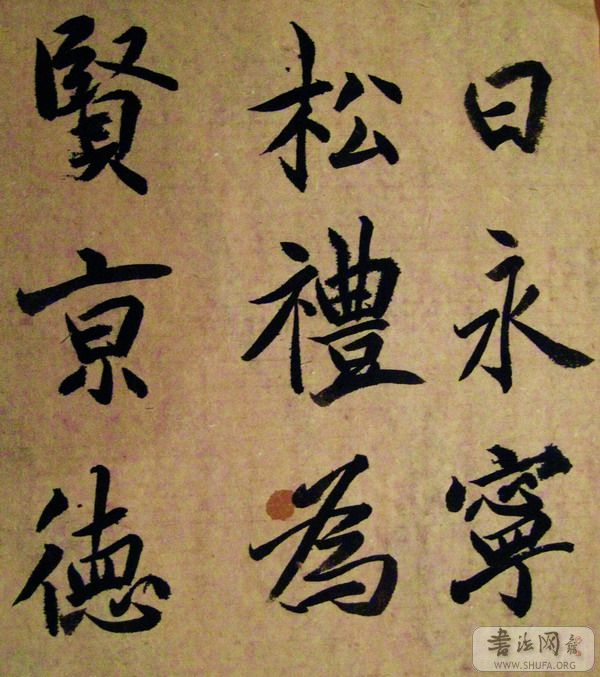 日永寧
松禮為
賢京德
書法网
WWW.SHUFA.ORG